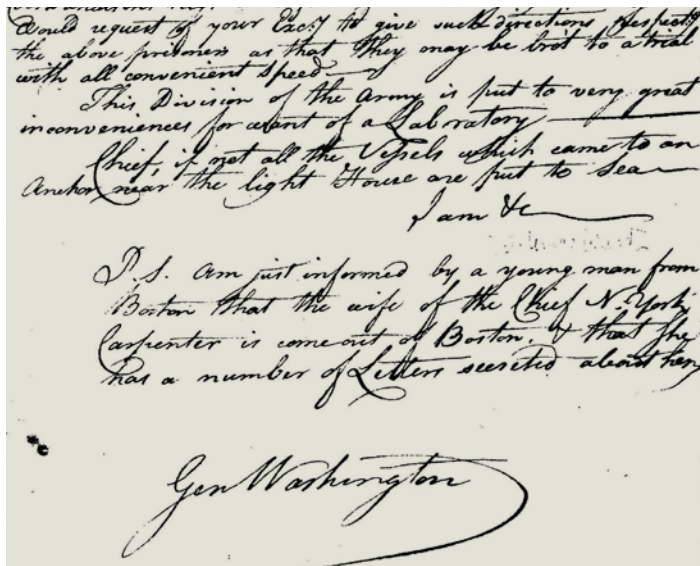 would request of your Excy to give such directions respectg
the above prisoners as that they may be brot to a trial
with all convenient speed—
This Division of the Army is put to very great
inconveniences for want of a Labratory —
Chief, if not all the Vessels which came to an
Anchor near the light House are put to Sea—
I am &c
P.S. am just informed by a young man from
Boston that the wife of the Chief N. York
Carpenter is come out of Boston. & that she
has a number of Letters secreted about her,
Gen Washington